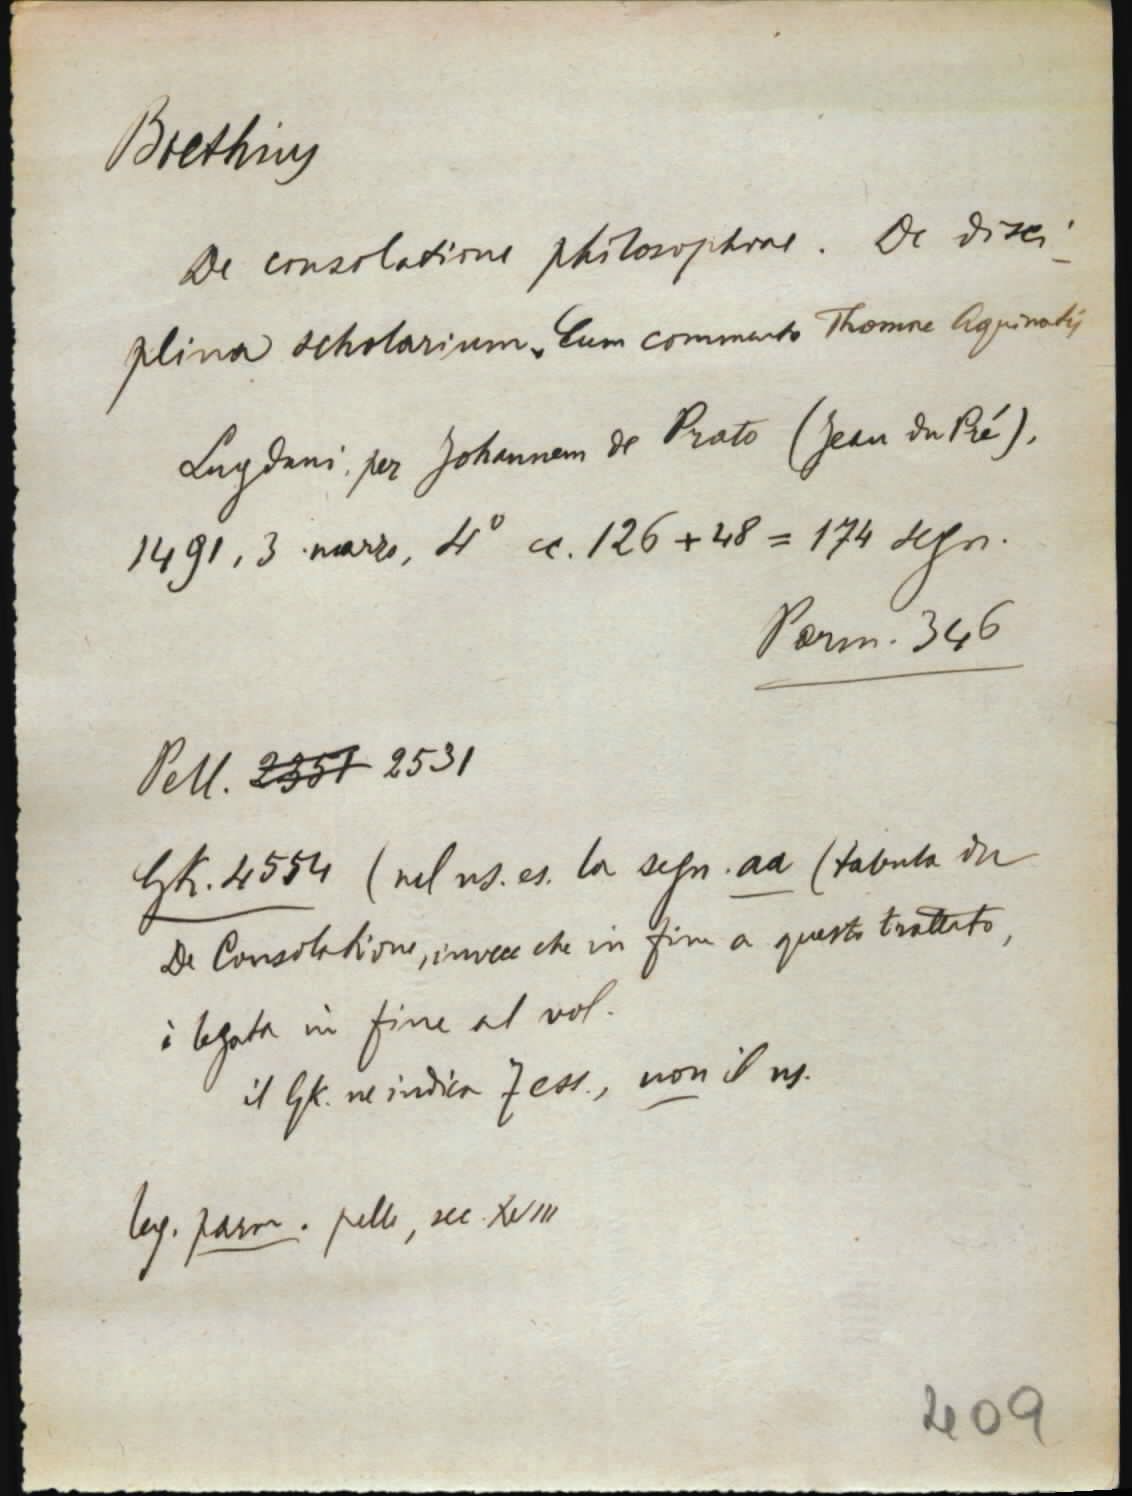 Boethius
De consolatione philosophiae. De disci-
plina scholarium. Cum commento Thomae Aquinatis
Lugduni, per Johannem de Prato (Jean du Pré),
1491, 3 marzo, 4° cc. 126 + 48 = 174 segn.
Parm. 346
Pell. 2357 2531
GK. 4554 (nel ns. es. la segn. aa (tabula du
De Consolatione, invece che in fine a questo trattato,
è legata in fine al vol.
il GK. ne indica 7 ess., non il ns.
leg. parm. pelle, sec. XVIII
409